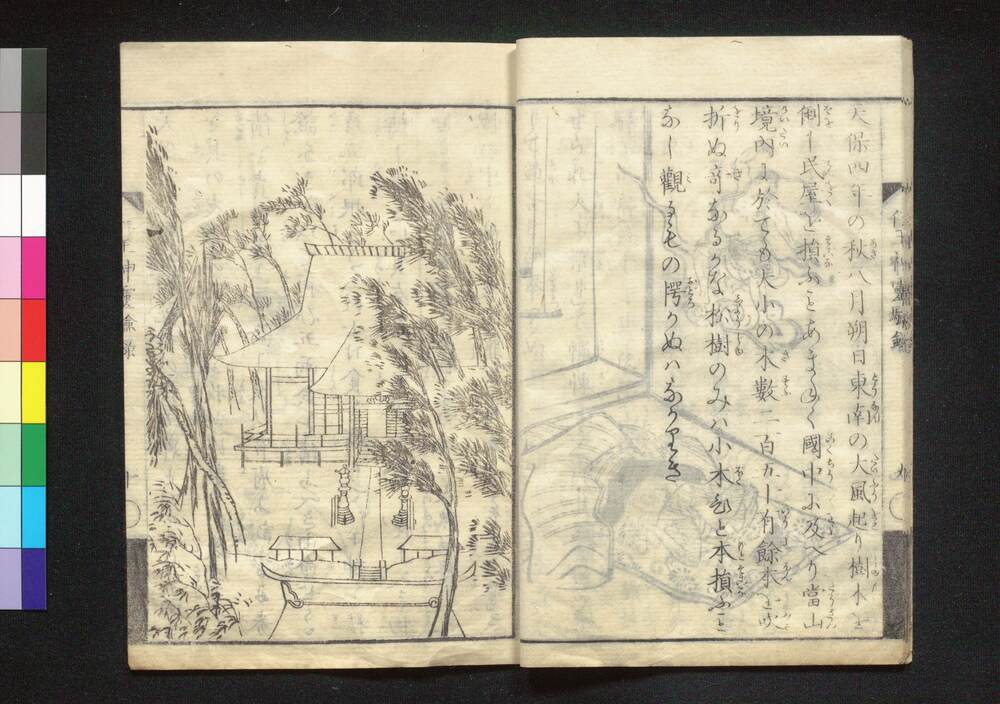 天保四年の秋八月朔日東南の大風起り樹木を
倒し民屋を損ふことあまねく國中に及へり當山
境内にがても大小の木數二百九十有餘木を吹
折ぬ奇なるかな松樹のみハ小木だと本損ふこと
なし觀るもの愕かぬハなかりき